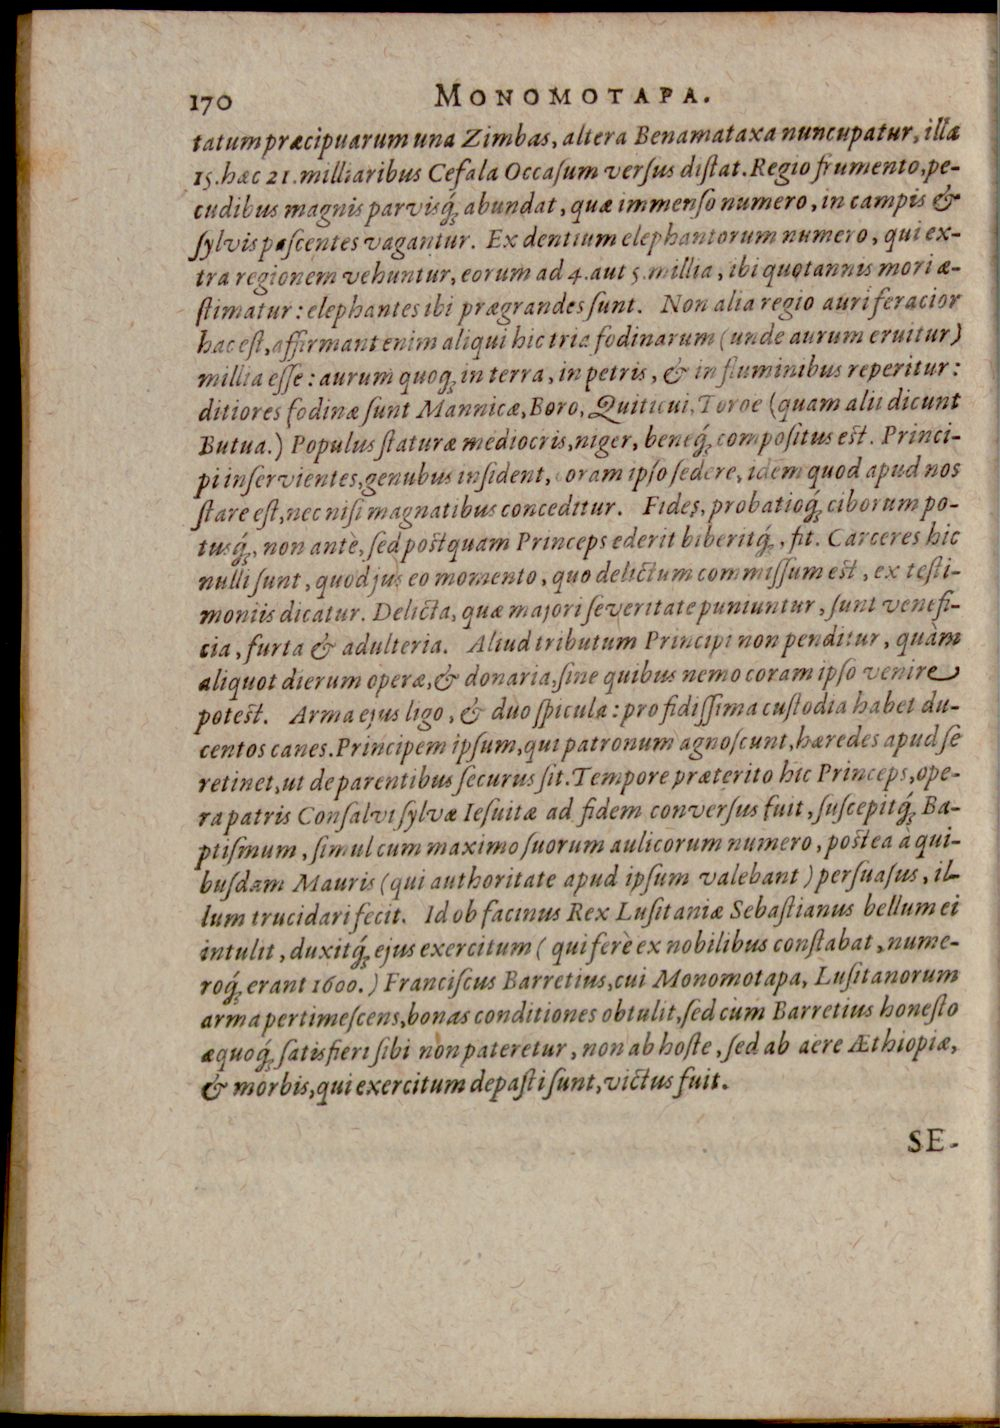 170 MONOMOTAPA.
tatum præcipuarum una Zimbas, altera Benamataxa nuncupatur, illa
15. hæc 21. milliaribus Cefala Occaſum verſus diſtat. Regio frumento, pe-
cudibus magnis parvisq́ꝫ abundat, quæ immenſo numero, in campis &
ſylvis paſcentes vagantur. Ex dentium elephantorum numero, qui ex-
tra regionem vehuntur, eorum ad 4. aut 5. millia, ibi quotannis mori æ-
ſtimatur: elephantes ibi prægrandes ſunt. Non alia regio auri feracior
hac eſt, affirmant enim aliqui hic tria fodinarum (unde aurum eruitur)
millia eſſe: aurum quoqꝫ in terra, in petris, & in fluminibus reperitur:
ditiores fodinæ ſunt Mannicæ, Boro, Quiticui, Toroe (quam alii dicunt
Butua.) Populus ſtaturæ mediocris, niger, beneq́ꝫ compoſitus eſt. Princi-
pi inſervientes, genubus inſident, coram ipſo ſedere, idem quod apud nos
ſtare eſt, nec niſi magnatibus conceditur. Fides, probatioq́ꝫ ciborum po-
tusq́ꝫ, non antè, ſed poſtquam Princeps ederit biberitq́ꝫ, fit. Carceres hic
nulli ſunt, quod jus eo momento, quo delictum commiſſum eſt, ex teſti-
moniis dicatur. Delicta, quæ majori ſeveritate puniuntur, ſunt venefi-
cia, furta & adulteria. Aliud tributum Principi non penditur, quàm
aliquot dierum operæ, & donaria, ſine quibus nemo coram ipſo venire
poteſt. Arma ejus ligo, & duo ſpicula: pro fidiſſima cuſtodia habet du-
centos canes. Principem ipſum, qui patronum agnoſcunt, hæredes apud ſe
retinet, ut de parentibus ſecurus ſit. Tempore præterito hic Princeps, ope-
ra patris Conſalvi ſylvæ Ieſuitæ ad fidem converſus fuit, ſuſcepitq́ꝫ Ba-
ptiſmum, ſimul cum maximo ſuorum aulicorum numero, poſtea à qui-
buſdam Mauris (qui authoritate apud ipſum valebant) perſuaſus, il-
lum trucidari fecit. Id ob facinus Rex Luſitaniæ Sebaſtianus bellum ei
intulit, duxitq́ꝫ ejus exercitum (qui ferè ex nobilibus conſtabat, nume-
roq́ꝫ erant 1600.) Franciſcus Barretius, cui Monomotapa, Luſitanorum
arma pertimeſcens, bonas conditiones obtulit, ſed cùm Barretius honeſto
æquoq́ꝫ ſatisfieri ſibi non pateretur, non ab hoſte, ſed ab aere Æthiopiæ,
& morbis, qui exercitum depaſti ſunt, victus fuit.
SE-